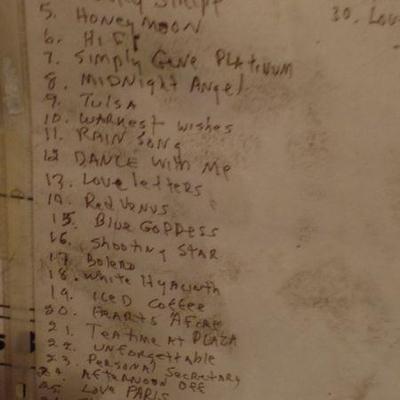 5. HONEYMOON
30. Lov
6. Hi Fi
7. Simply Gene PLATINUM
8. MIDNight Angel
9. TulsA
10. WARMEST wishes
11. RAIN Song
12 DANCE With Me
13. Love letters
14. Red VeNUS
15. Blue GODDESS
16. Shooting STAR
17. Bolero
18. White HyAciNth
19. ICED Coffee
20. HEARTS AFIRE
21. TEA time AT PLAZA
22. UNforgettable
23. PERSONAl Secretary
24. AFTERNOON OFF
25. Love PARIS